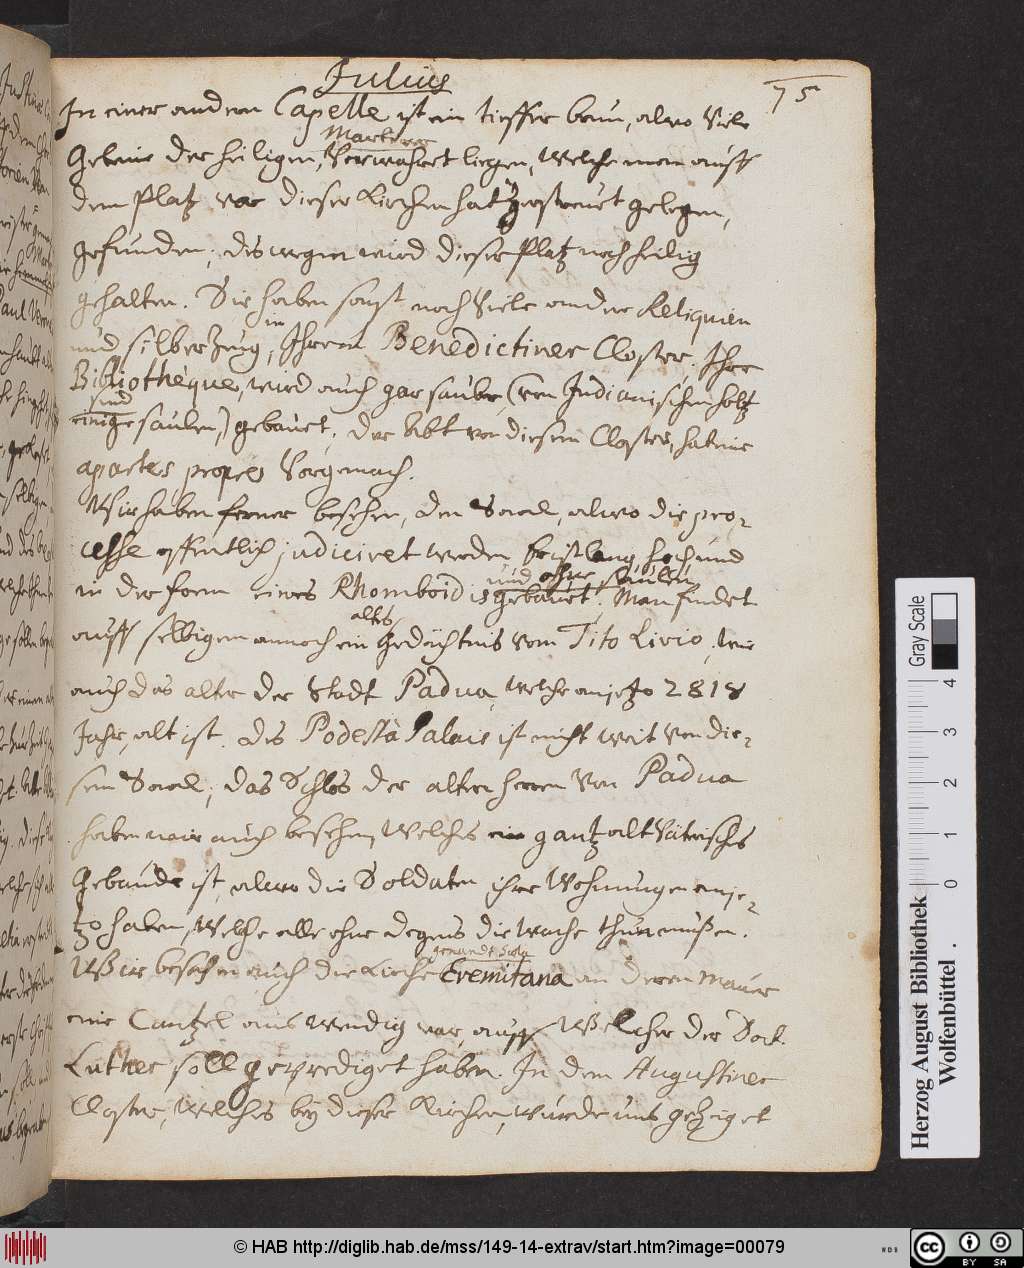 Julius
75
In einer andern Capelle ist ein tieffer brun, alwo Viele
Martirer
Gebeine der heiligen, Verwahrt liegen, Welche man auff
dem Platz vor dieser Kirchen hat zerstreut gelegen,
gefunden, deswegen wird dieser Platz noch heilig
gehalten. Sie haben sonst noch Viele andere Reliquien
in
und silber Zeug, Ihrem Benedictiner Closter. Ihre
Bibliotheque, wird auch gar sauber, (von Indianischen holtz
sind
einige saulen,) gebauet, der Abt von diesem Closter, hat eine
apartes propres Vorgemach.
Wir haben ferner besehen, den Saal, alwo die pro-
cesse offentlich judiciret werden, ist lang, hoch und
und ohne säulen
in der form eines Rhomboid is gebauet. Man findet
altes
auff selbigem annoch ein Gedächtnis vom Tito Livio, wie
auch das alter der Stadt Padua, welche anjetzo 2818
Jahr, alt ist. Des Podestà Palais ist nicht weit von die-
sem Saal, das Schlos der alten herren Von Padua
haben wir auch besehen, Welches ein gantz alt Vätrisches
Gebäude ist, alwo die Soldaten ihre Wohnungen anje-
tzo haben, Welche alle ohne degens die wache thun müßen.
genandt
Wir besahen auch die Kirche Eremitana an deren Mauer
eine Cantzel auswendig war, auff Welcher der Doct.
Luther soll geprediget haben. In dem Augustiner
Closter, Welches bey dieser Kirchen, wurde uns gezeiget
Gray Scale
0 1 2 3 4
Herzog August Bibliothek
Wolfenbüttel .
© HAB http://diglib.hab.de/mss/149-14-extrav/start.htm?image=00079
cc BY SA